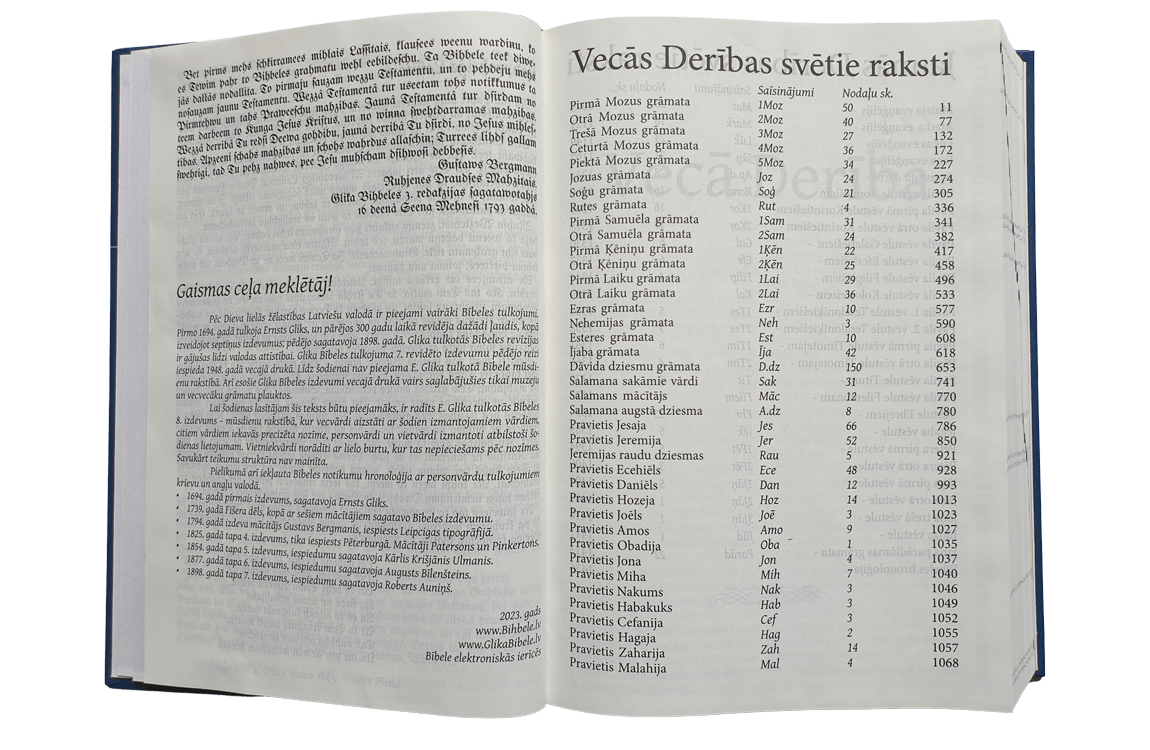 Bet pirms mehs schkirramees mihlais Lassitais, klausees weenu wardinu, ko
es Tewim pahr to Bihbeles grahmatu wehl eebildeschu. Ta Bihbele teek diwe-
jás dallás nodallita. To pirmaju sauzam wezzu Testamentu, und to pehdeju mehs
nosauzam jaunu Testamentu. Wezzá Testamentá tur useetam tohs notikkumus ta
Pirmtehwu un tahs Praweeschu mahzibas. Jauná Testamentá tur dsirdam no
teem darbeem to Kunga Jesus Kristus, und no winna swehtdarramas mahzibas.
Wezzá derribá Tu redsi Deewa gohdibu, jauná derribá Tu dsirdi, no Jesus mihles-
tibas. Apzeeni schahs mahzibas und schohs wahrdus allaschin; Turrees lihds gallam
swehtigi, tad Tu pehz nahwes, pee Jesu muhscham dsihwosi debbesis.
Gustaws Bergmann
Ruhjenes Draudses Mahzitais,
Glika Bihbeles 3. redakzijas sagatawotahjs
16 deená Seena Mehnesi 1793 gaddá.
Gaismas ceļa meklētāj!
Pēc Dieva lielās žēlastības Latviešu valodā ir pieejami vairāki Bībeles tulkojumi.
Pirmo 1694. gadā tulkoja Ernsts Gliks, un pārējos 300 gadu laikā revidēja dažādi ļaudis, kopā
izveidojot septiņus izdevumus; pēdējo sagatavoja 1898. gadā. Glika tulkotās Bībeles revīzijas
ir gājušas līdzi valodas attīstībai. Glika Bībeles tulkojuma 7. revidēto izdevumu pēdējo reizi
iespieda 1948. gadā vecajā drukā. Līdz šodienai nav pieejama E. Glika tulkotā Bībele mūsdi-
enu rakstībā. Arī esošie Glika Bībeles izdevumi vecajā drukā vairs saglabājušies tikai muzeju
un vecvecāku grāmatu plauktos.
Lai šodienas lasītājam šis teksts būtu pieejamāks, ir radīts E. Glika tulkotās Bībeles
8. izdevums - mūsdienu rakstībā, kur vecvārdi aizstāti ar šodien izmantojamiem vārdiem,
citiem vārdiem iekavās precizēta nozīme, personvārdi un vietvārdi izmantoti atbilstoši šo-
dienas lietojumam. Vietniekvārdi norādīti ar lielo burtu, kur tas nepieciešams pēc nozīmes.
Savukārt teikumu struktūra nav mainīta.
Pielikumā arī iekļauta Bībeles notikumu hronoloģija ar personvārdu tulkojumiem
krievu un angļu valodā.
• 1694. gadā pirmais izdevums, sagatavoja Ernsts Gliks.
• 1739. gadā Fišera dēls, kopā ar sešiem mācītājiem sagatavo Bībeles izdevumu.
• 1794. gadā izdeva mācītājs Gustavs Bergmanis, iespiests Leipcigas tipogrāfijā.
• 1825. gadā tapa 4. izdevums, tika iespiests Pēterburgā. Mācītāji Patersons un Pinkertons.
• 1854. gadā tapa 5. izdevums, iespiedumu sagatavoja Kārlis Krišjānis Ulmanis.
• 1877. gadā tapa 6. izdevums, iespiedumu sagatavoja Augusts Bīlenšteins.
• 1898. gadā tapa 7. izdevums, iespiedumu sagatavoja Roberts Auniņš.
2023. gads
www.Bihbele.lv
www.GlikaBibele.lv
Bībele elektroniskās ierīcēs
Vecās Derības svētie raksti
Saīsinājumi Nodaļu sk.
Pirmā Mozus grāmata 1Moz 50 11
Otrā Mozus grāmata 2Moz 40 77
Trešā Mozus grāmata 3Moz 27 132
Ceturtā Mozus grāmata 4Moz 36 172
Piektā Mozus grāmata 5Moz 34 227
Jozuas grāmata Joz 24 274
Soģu grāmata Soģ 21 305
Rutes grāmata Rut 4 336
Pirmā Samuēla grāmata 1Sam 31 341
Otrā Samuēla grāmata 2Sam 24 382
Pirmā Ķēniņu grāmata 1Ķēn 22 417
Otrā Ķēniņu grāmata 2Ķēn 25 458
Pirmā Laiku grāmata 1Lai 29 496
Otrā Laiku grāmata 2Lai 36 533
Ezras grāmata Ezr 10 577
Nehemijas grāmata Neh 3 590
Esteres grāmata Est 10 608
Ījaba grāmata Īja 42 618
Dāvida dziesmu grāmata D.dz 150 653
Salamana sakāmie vārdi Sak 31 741
Salamans mācītājs Māc 12 770
Salamana augstā dziesma A.dz 8 780
Pravietis Jesaja Jes 66 786
Pravietis Jeremija Jer 52 850
Jeremijas raudu dziesmas Rau 5 921
Pravietis Ecehiēls Ece 48 928
Pravietis Daniēls Dan 12 993
Pravietis Hozeja Hoz 14 1013
Pravietis Joēls Joē 3 1023
Pravietis Amos Amo 9 1027
Pravietis Obadija Oba 1 1035
Pravietis Jona Jon 4 1037
Pravietis Miha Mih 7 1040
Pravietis Nakums Nak 3 1046
Pravietis Habakuks Hab 3 1049
Pravietis Cefanija Cef 3 1052
Pravietis Hagaja Hag 2 1055
Pravietis Zaharija Zah 14 1057
Pravietis Malahija Mal 4 1068